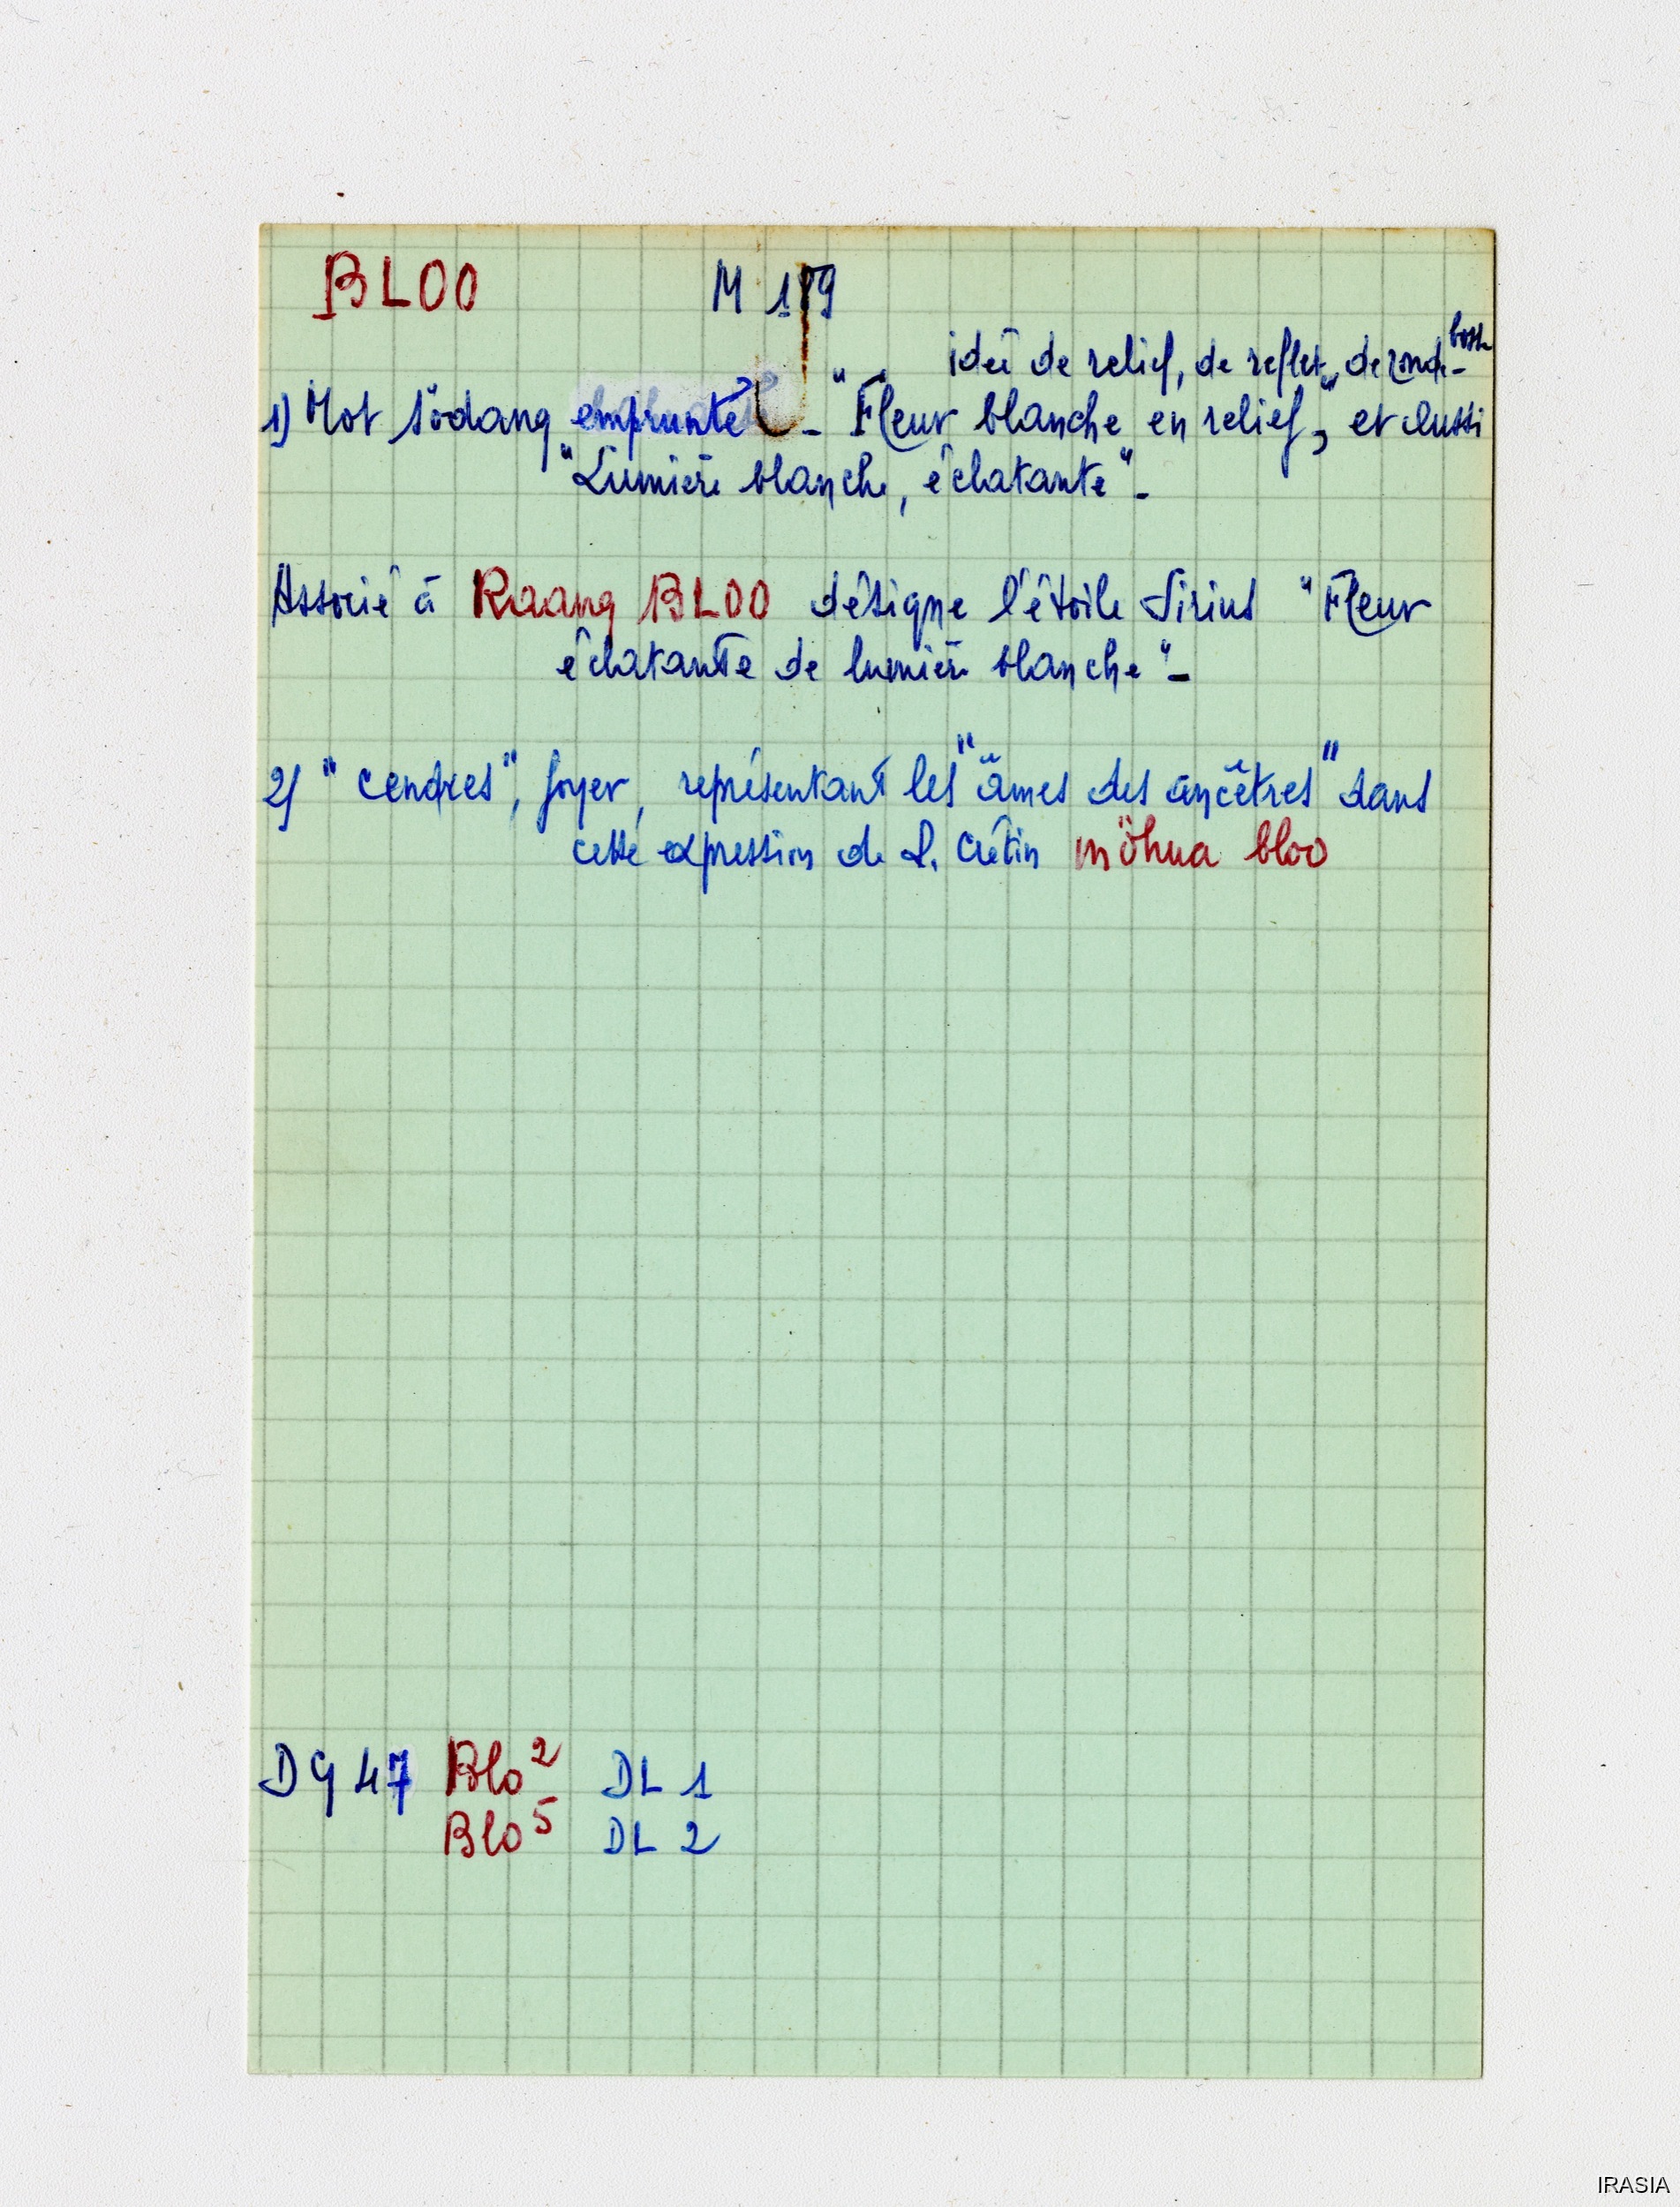 BLOO M 1
idée de relief, de reflet, de ronde-bosse
1) Mot södang emprunté - "Fleur blanche en relief", et aussi
"Lumière blanche, éclatante"-
Associé à Raang BLOO désigne l'étoile Sirius "Fleur
éclatante de lumière blanche"-
2) "cendres", foyer, représentant les "âmes des ancêtres" dans
cette expression de S. Crétin möhua bloo
DG 47 Blo² DL 1
Blo⁵ DL 2
IRASIA